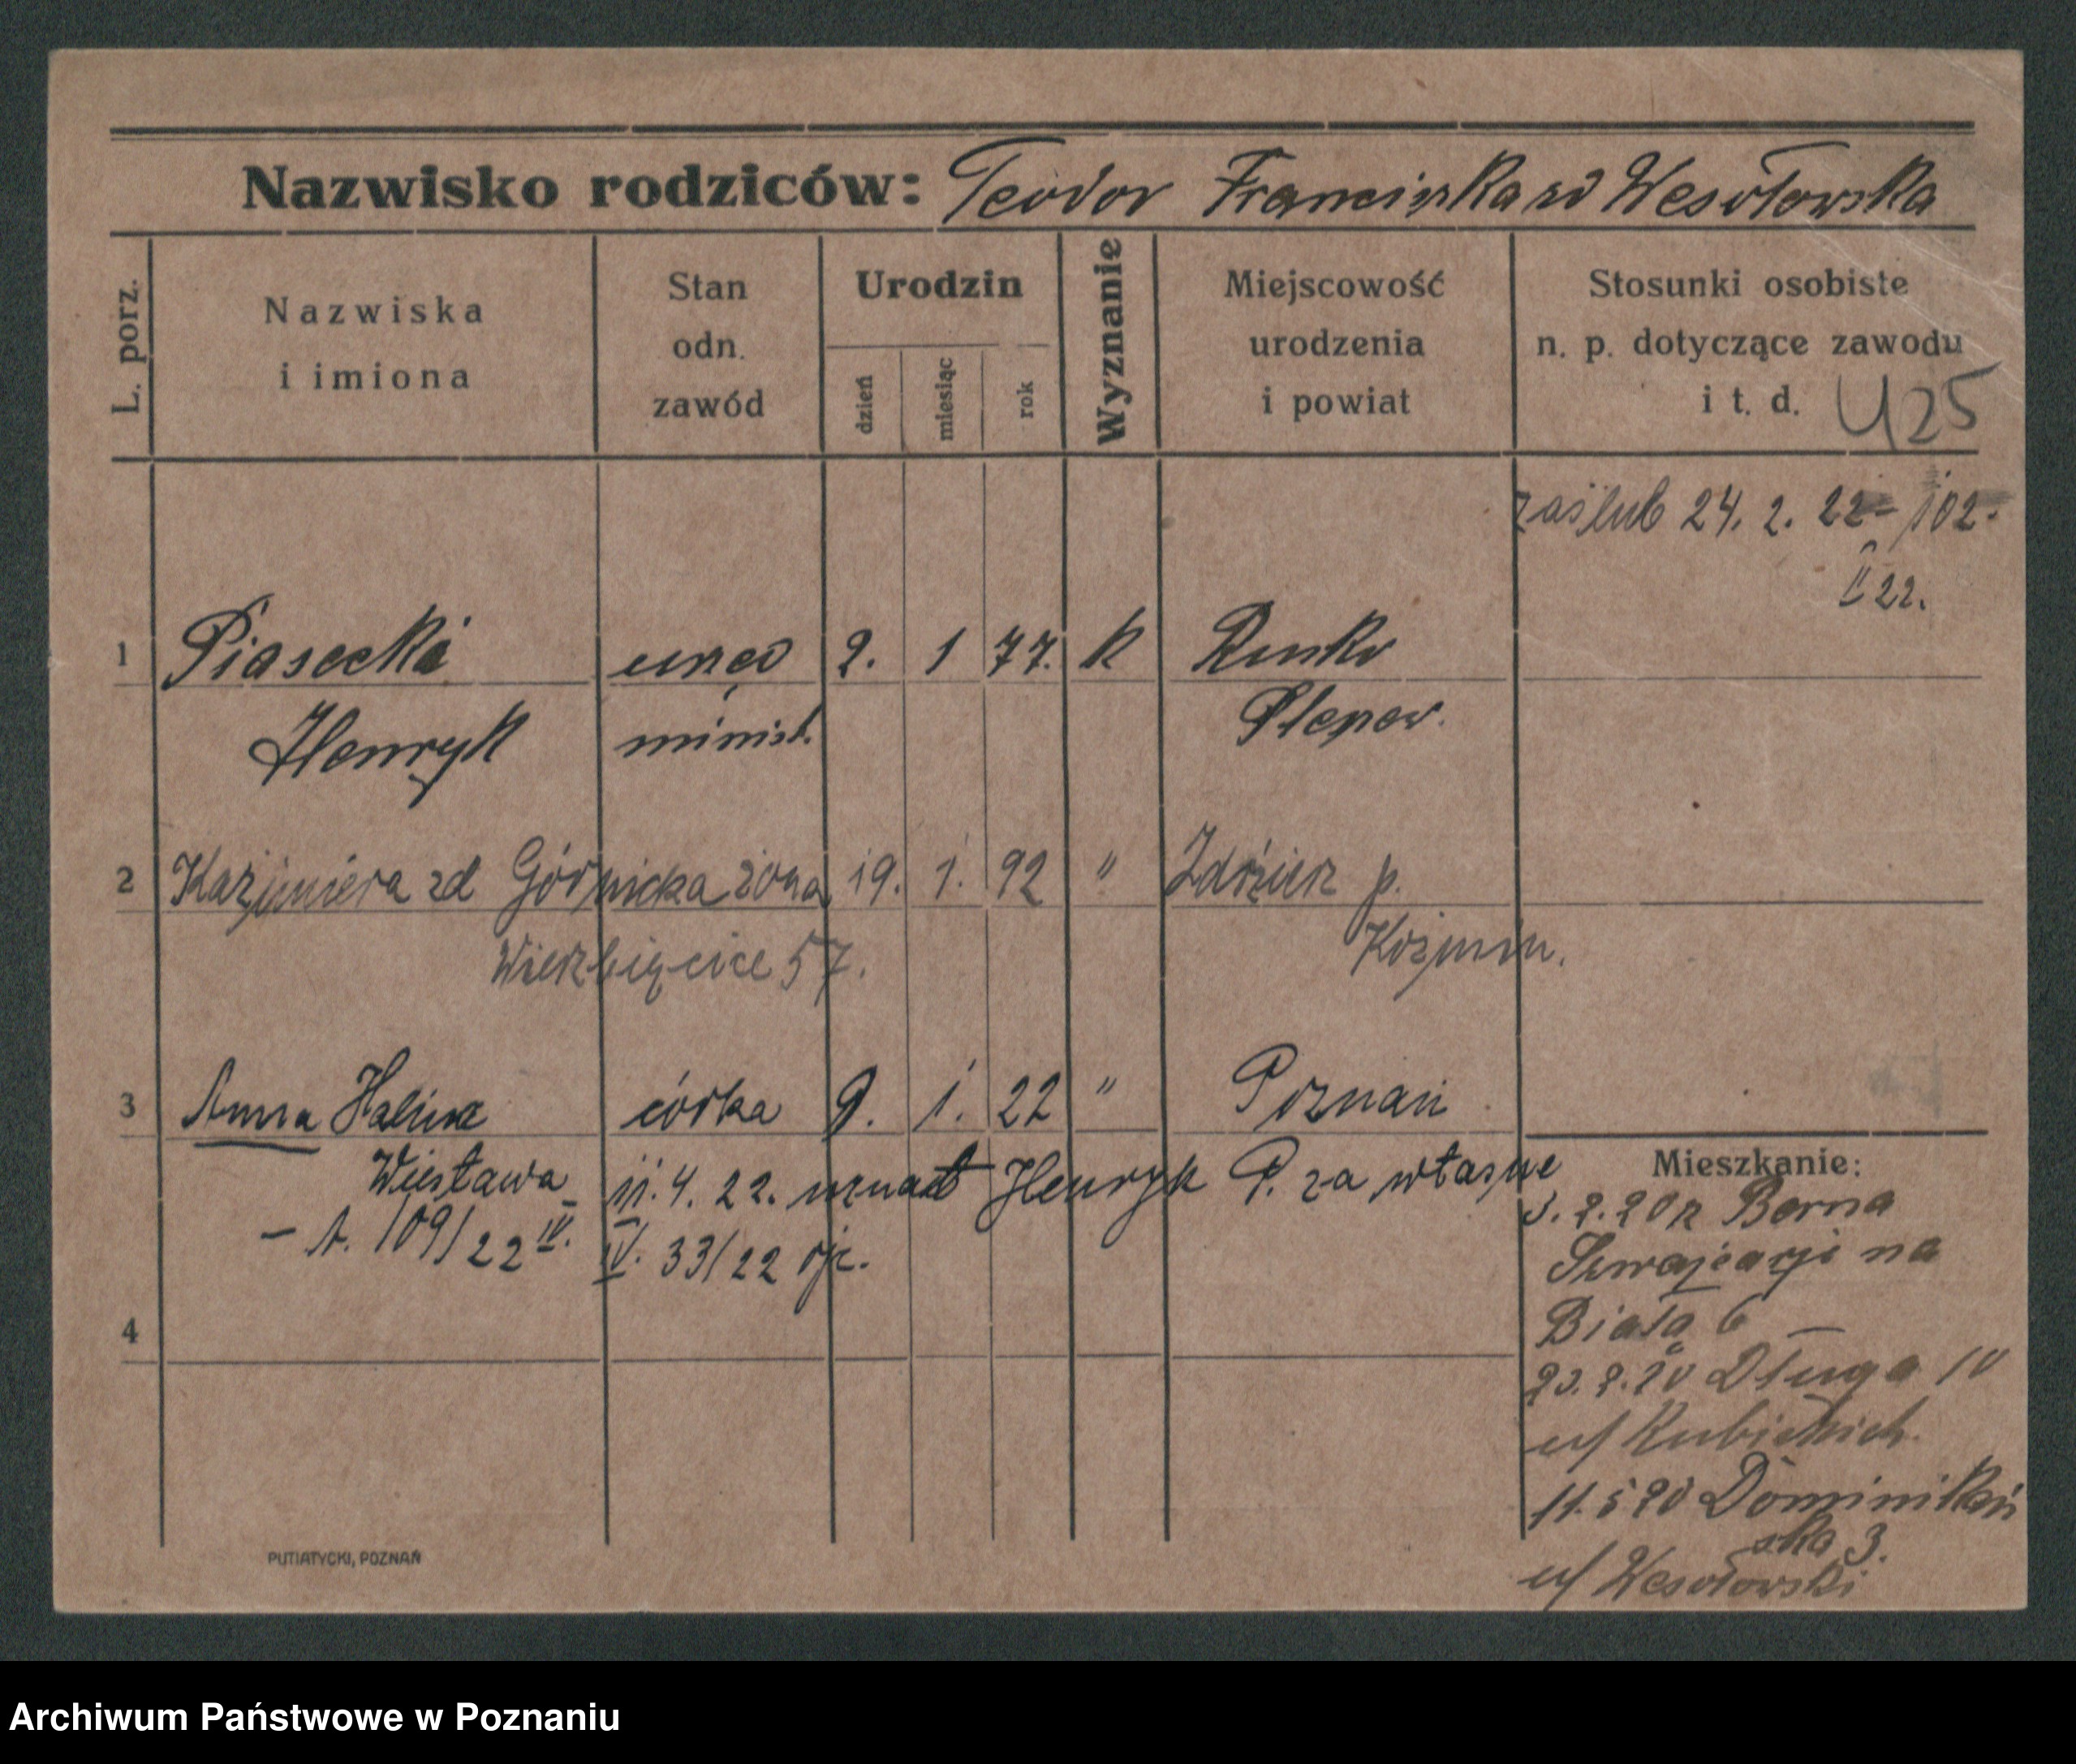 Nazwisko rodziców: Teodor Franciszka zd Wesołowska
L. porz.
Nazwiska
i imiona
Stan
odn.
zawód
Urodzin
dzień
miesiąc
rok
Wyznanie
Miejscowość
urodzenia
i powiat
Stosunki osobiste
n. p. dotyczące zawodu
i t. d.
U25
zaślub 24. 2. 22 - 102.
II 22.
1 Piasecki urzęd 2. 1 77. k Rusko
Henryk minist. Pleszew.
2 Kazimiera zd Górnicka żona 19. 1. 92 " p.
Wierzbięcice 57. Koźmin.
3 Anna Halina córka 9. 1. 22 " Poznań
Wiesława 11. 4. 22. uznał Henryk P. za własne
- A. 109/22 IV. IV. 33/22 ojc.
4
Mieszkanie:
3. 2. 20 z Berna
Szwajcarji na
Białą 6
23. 2. 20 Długa 10
u/ Kubickich.
11. 5 20 Dominikań
ska 3.
u/ Wesołowski
PUTIATYCKI, POZNAŃ
Archiwum Państwowe w Poznaniu